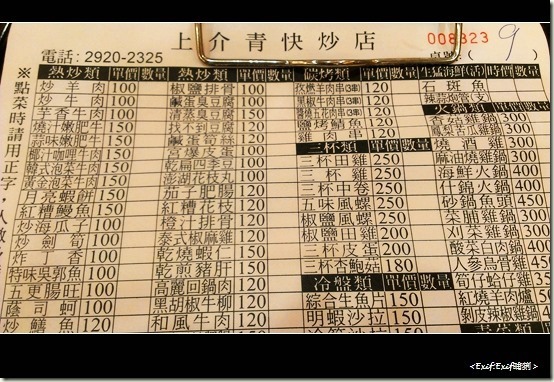 上介青快炒店
電話:2920-2325
008323
桌號:( 9 )
※點菜時請用正字,
熱炒類 單價 數量
炒羊肉 100
炒牛肉 100
芋香牛肉 100
燒汁嫩肥牛 150
蒜味嫩肥牛 150
椰汁咖哩牛肉 150
韓式泡菜牛肉 150
黃金泡菜牛肉 150
月亮蝦餅 150
紅糟鰻魚 150
炒海瓜子 100
炒劍筍 100
炸丁香 100
特味吳郭魚 100
五更腸旺 100
蔭司蚵 100
炒鱔魚 120
熱炒類 單價 數量
椒鹽排骨 100
鹹蛋臭豆腐 100
清蒸臭豆腐 150
找不到豆腐 120
鹹蛋苦瓜
宮爆皮蛋 100
乾扁四季豆 100
澎湖花枝丸 100
茄子肥腸 120
紅糟花枝 120
橙汁排骨 120
泰式椒麻雞 120
乾燒蝦仁 150
乾煎豬肝 150
高麗回鍋肉 120
黑胡椒牛柳 120
和風牛肉 120
碳烤類 單價 數量
孜然羊肉串(3串) 120
黑椒牛肉串(3串) 120
120
鹽烤鯖魚 120
雞肉串 120
三杯類 單價 數量
三杯田雞 250
三杯雞 250
三杯中卷 250
五味風螺 250
椒鹽風螺 250
椒鹽田雞 200
三杯皮蛋 200
三杯杏鮑菇 180
冷盤類 單價 數量
綜合生魚片 150
明蝦沙拉 150
生猛海鮮(活) 時價 數量
石斑魚
火鍋類 單價 數量
鳳梨苦瓜雞鍋 300
燒酒雞 400
麻油燒雞鍋 300
海鮮火鍋 400
什錦火鍋 400
砂鍋魚頭 450
菜脯雞鍋 300
刈菜雞鍋 300
酸菜白肉鍋 400
人參烏骨雞 450
筍仔蛤仔雞 350
紅燒羊肉爐 500
剝皮辣椒雞鍋 300
<Exif:Exif雜誌>